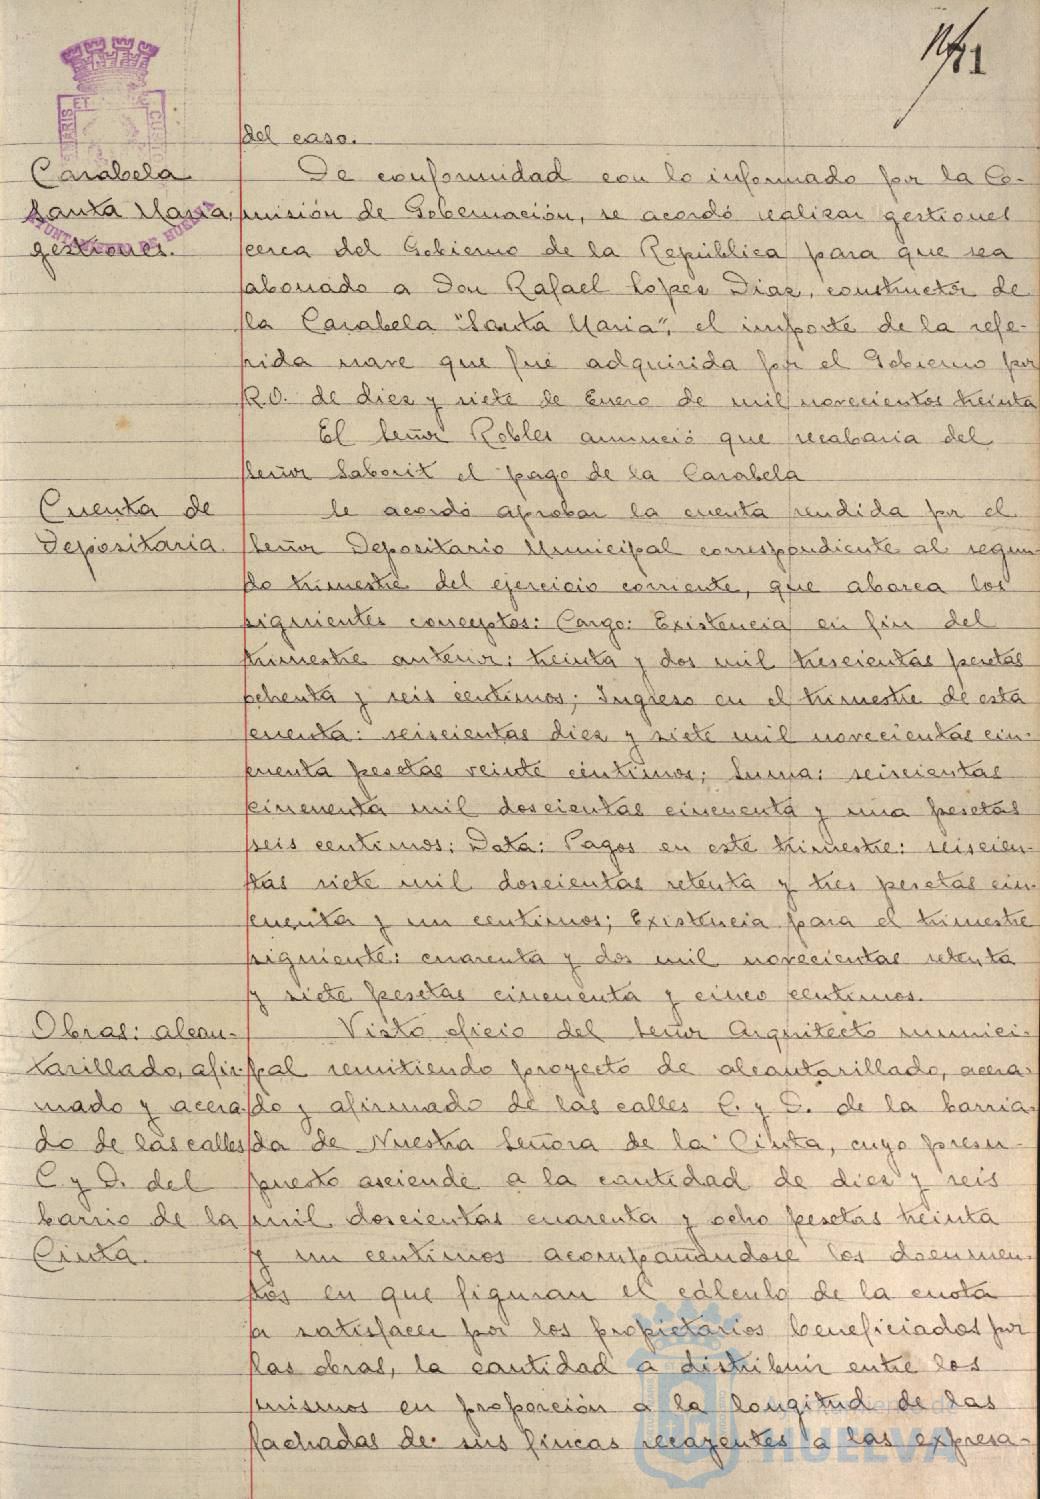 71
del caso.
Carabela
Santa Maria,
gestiones.
De conformidad con lo informado por la Co-
misión de Gobernación, se acordó realizar gestiones
cerca del Gobierno de la República para que sea
abonado a Don Rafael Lopez Diaz, constructor de
la Carabela "Santa Maria", el importe de la refe-
rida nave que fué adquirida por el Gobierno por
R.O. de diez y siete de Enero de mil novecientos treinta
El Señor Robles anunció que recabaria del
Señor Saborit el pago de la Carabela
Cuenta de
Depositaria.
Se acordó aprobar la cuenta rendida por el
Señor Depositario Municipal correspondiente al segun-
do trimestre del ejercicio corriente, que abarca los
siguientes conceptos: Cargo: Existencia en fin del
trimestre anterior: treinta y dos mil trescientas pesetas
ochenta y seis centimos; Ingreso en el trimestre de esta
cuenta: seiscientas diez y siete mil novecientas cin-
cuenta pesetas veinte centimos; Suma: seiscientas
cincuenta mil doscientas cincuenta y una pesetas
seis centimos; Data: Pagos en este trimestre: seiscien-
tas siete mil doscientas setenta y tres pesetas cin-
cuenta y un centimos; Existencia para el trimestre
siguiente: cuarenta y dos mil novecientas setenta
y siete pesetas cincuenta y cinco centimos.
Obras: alcan-
tarillado, afir-
mado y acera-
do de las calles
C. y D. del
barrio de la
Cinta.
Visto oficio del Señor Arquitecto munici-
pal remitiendo proyecto de alcantarillado, acera-
do y afirmado de las calles C. y D. de la barria-
da de Nuestra Señora de la Cinta, cuyo presu-
puesto asciende a la cantidad de diez y seis
mil doscientas cuarenta y ocho pesetas treinta
y un centimos acompañándose los documen-
tos en que figuran el cálculo de la cuota
a satisfacer por los propietarios beneficiados por
las obras, la cantidad a distribuir entre los
mismos en proporción a la longitud de las
fachadas de sus fincas recayentes a las expresa-
HUELVA